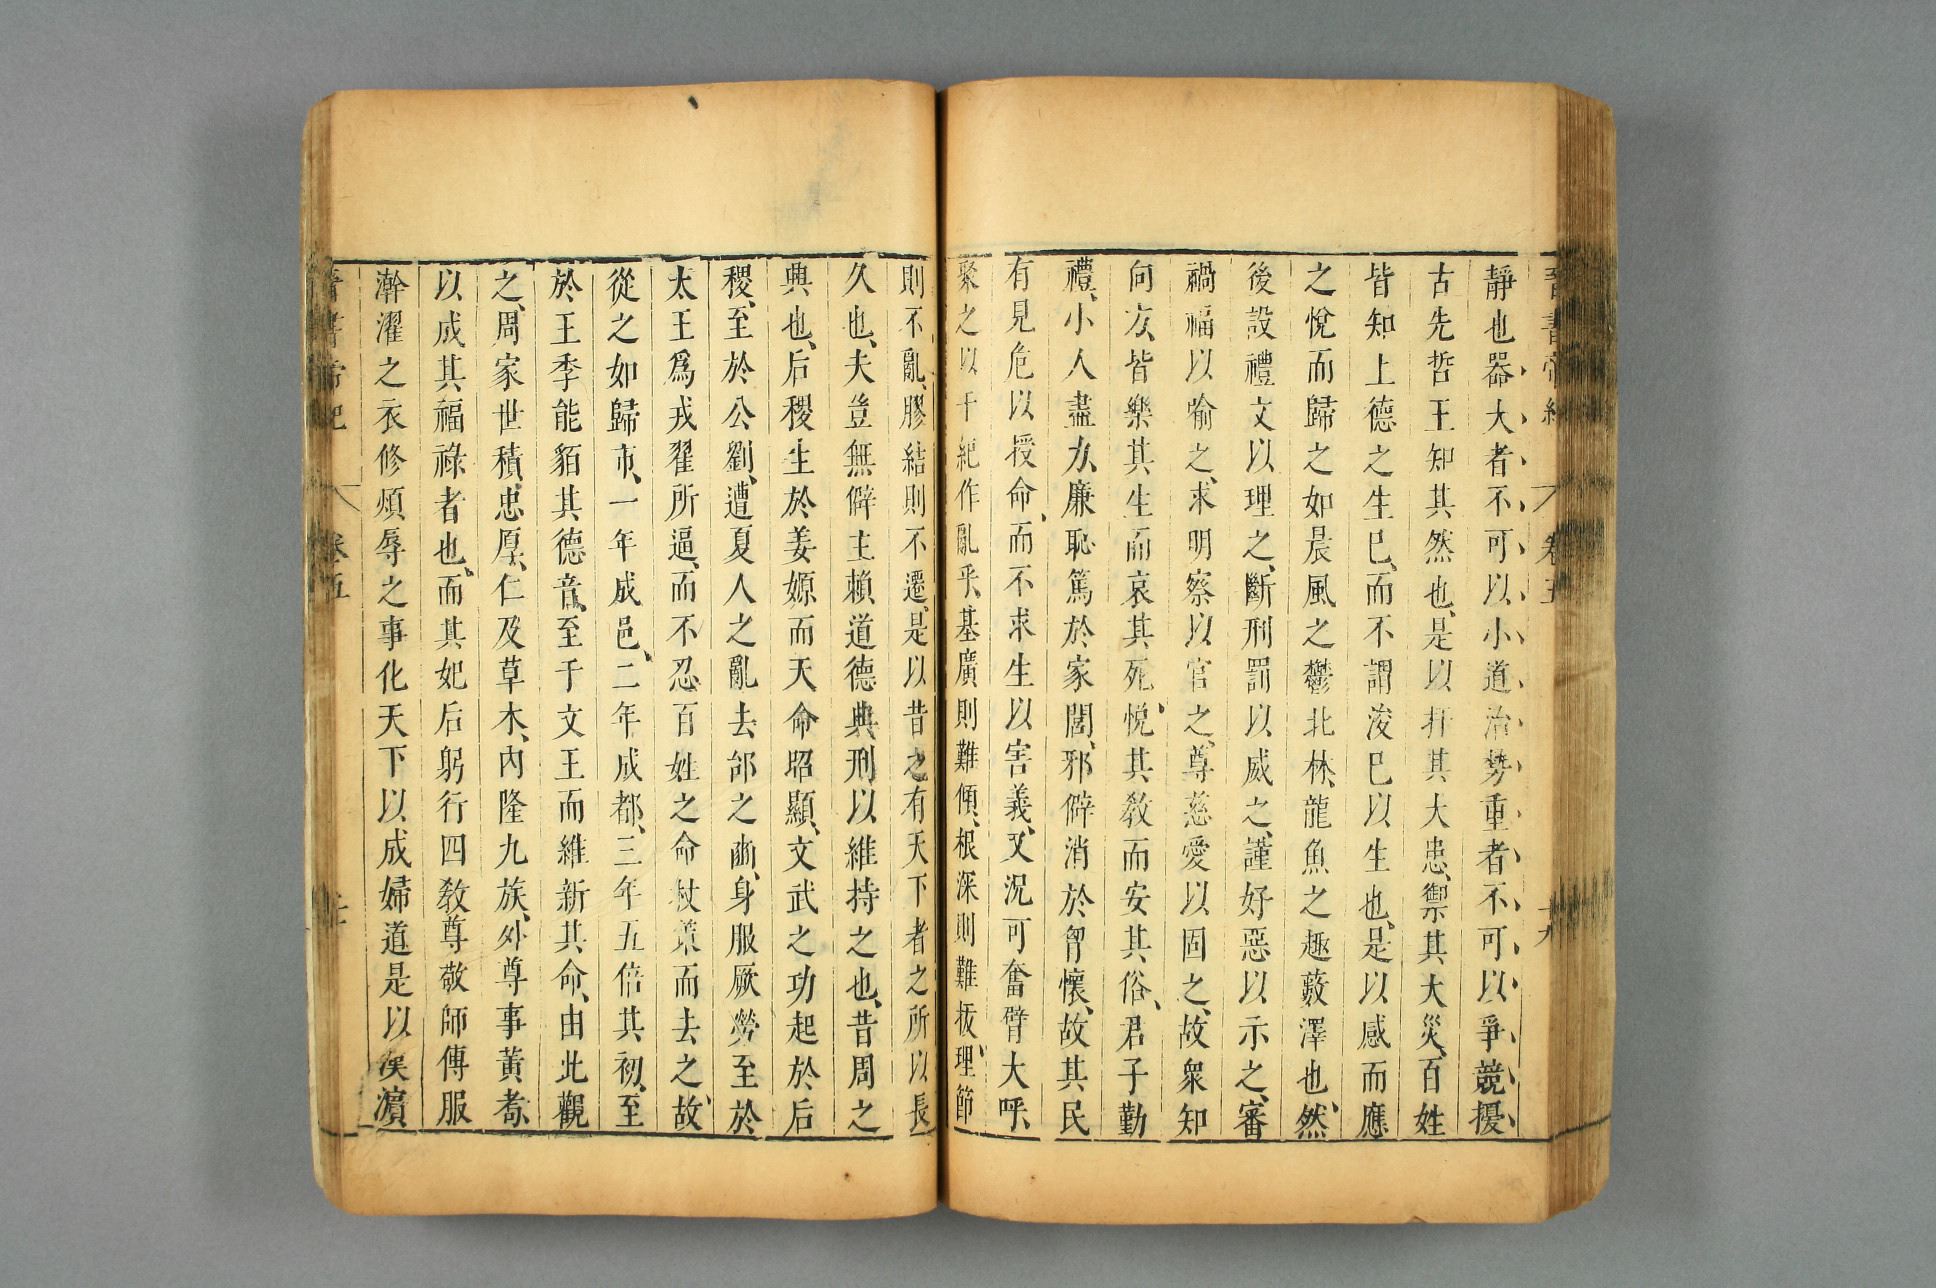 晉書帝紀 卷五 十九
靜也器大者不可以小道治勢重者不可以爭競擾
古先哲王知其然也是以扞其大患禦其大災百姓
皆知上德之生已而不謂浚已以生也是以感而應
之悅而歸之如晨風之鬱北林龍魚之趣藪澤也然
後設禮文以理之斷刑罰以威之謹好惡以示之審
禍福以喻之求明察以官之尊慈愛以固之故衆知
向方皆樂其生而哀其死悅其教而安其俗君子勤
禮小人盡力廉恥篤於家閭邪僻消於胷懷故其民
有見危以授命而不求生以害義又況可奮臂大呼
聚之以干紀作亂乎基廣則難傾根深則難拔理節
則不亂膠結則不遷是以昔之有天下者之所以長
久也夫豈無僻主賴道德典刑以維持之也昔周之
典也后稷生於姜嫄而天命昭顯文武之功起於后
稷至於公劉遭夏人之亂去邰之豳身服厥勞至於
太王爲戎翟所逼而不忍百姓之命杖策而去之故
從之如歸市一年成邑二年成都三年五倍其初至
於王季能貊其德音至于文王而維新其命由此觀
之周家世積忠厚仁及草木內隆九族外尊事黃耇
以成其福祿者也而其妃后躬行四教尊敬師傅服
澣濯之衣修煩辱之事化天下以成婦道是以漢濵
晉書帝紀 卷五 二十